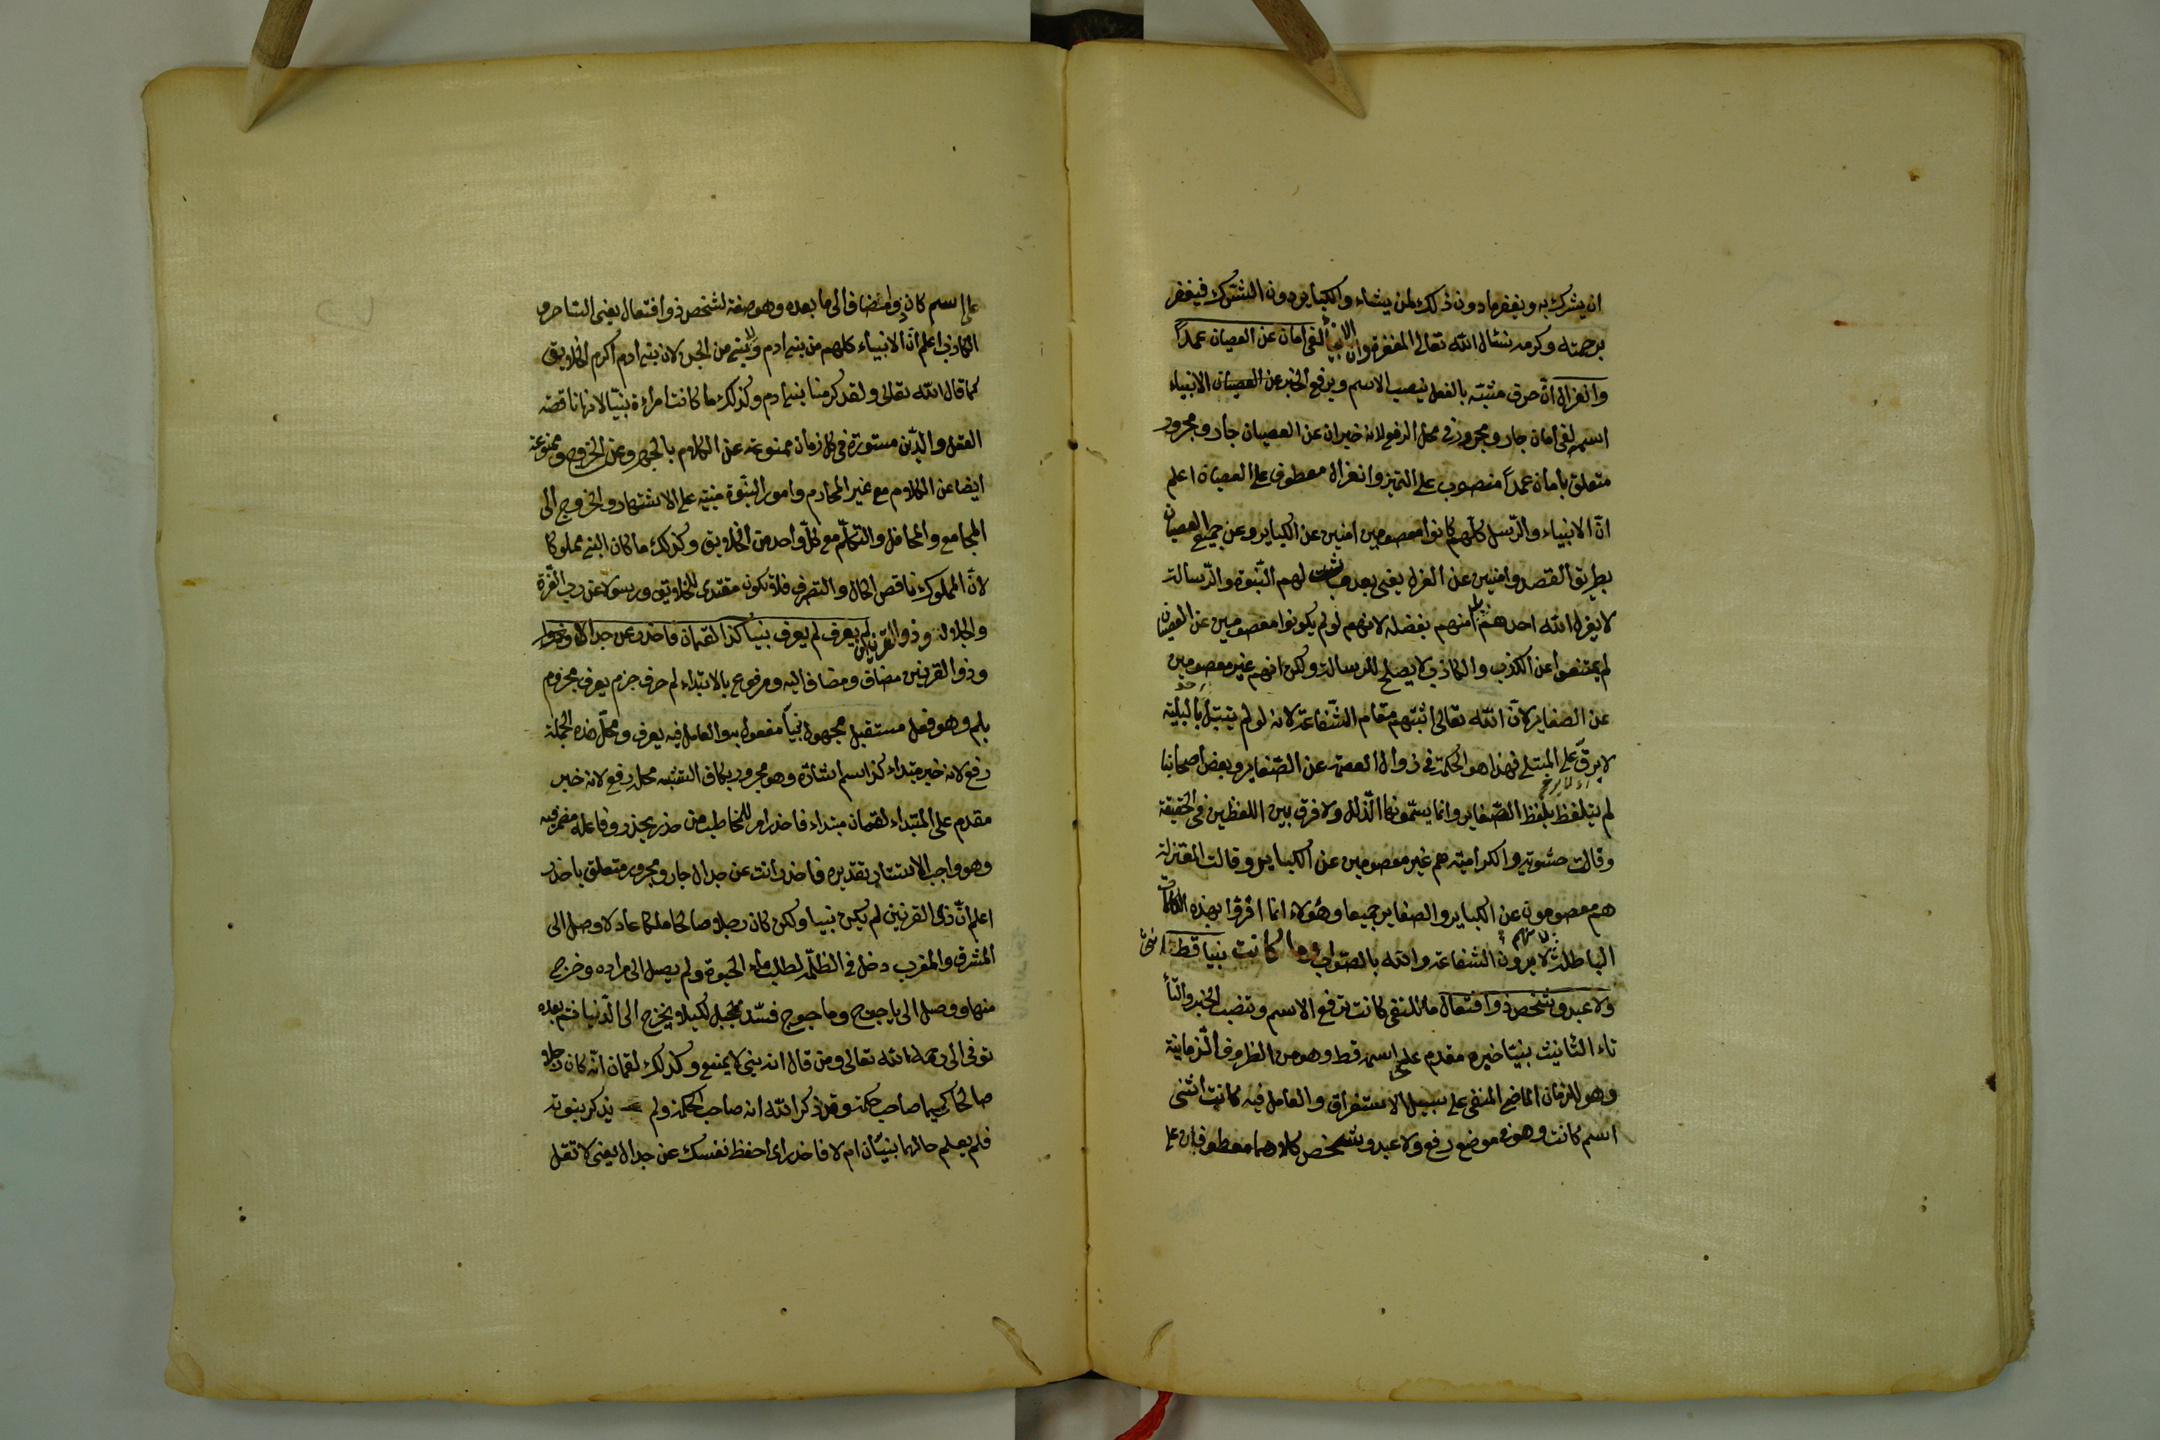 ان يشرك به ويغفر ما دون ذلك لمن يشاء والكبائر دون الشرك فيغفر
برحمته وكرمه نسئال الله تعالى المغفرة وان الانبياء لفى امان عن العصيان عمدا
وانعزال ان حرف مشبه بالفعل ينصب الاسم ويرفع الخبر عن العصيان الانبياء
اسمه لفى امان جار ومجرور فى محل الرفع لانه خبر ان عن العصيان جار ومجرور
متعلق بامان عمدا منصوب على التميز وانعزال معطوف على العصيان اعلم
ان الانبياء والرسل كلهم كانوا معصومين امنين عن الكبائر وعن جميع العصيان
بطريق القصد وامنين عن العزل يعنى بعد ما ثبت لهم النبوة والرسالة
لا يعزل الله احدهم منهم بفضله لانهم لو لم يكونوا معصومين عن العصيان
لم يمتنعوا عن الكذب والكاذب لا يصلح للرسالة ولكن انهم غير معصومين
عن الصغاير لان الله تعالى اثبتهم مقام الشفاعة لانه لو لم يبتل بالبلية
لا يرق على المبتلى فهذا هو الحكمة فى زوال العصمة عن الصغاير وبعض اصحابنا
لم يتلفظ بلفظ الصغاير وانما يسمونها الذلل ولا فرق بين اللفظين فى الحقيقة
وقالت حشوية والكرامية هم غير معصومين عن الكبائر وقالت المعتزلة
هم معصومون عن الكبائر والصغاير جميعا وهؤلاء انما اقروا بهذه الكلمات
الباطلة لا يرون الشفاعة والله بالصواب وما كانت نبيا قط انثى
ولا عبد وشخص ذو افتعال ما للنفى كانت ترفع الاسم وتنصب الخبر والتاء
تاء التانيث نبيا خبره مقدم على اسمه قط وهو من الظروف الزمانية
وهو للزمان الماضى المنفى على سبيل الاستغراق والعامل فيه كانت انثى
اسم كانت وهو فى موضع رفع ولا عبد وشخص كلاهما معطوفان على
على اسم كان ذو مضاف الى ما بعده وهو صفة لشخص ذو افتعال يعنى الساحر و
الكاذب اعلم ان الانبياء كلهم من بنى ادم ولا نبى من الجن لان بنى ادم اكرم الخلايق
كما قال الله تعالى ولقد كرمنا بنى ادم وكذلك ما كانت امراءة نبيا لانها ناقصة
العقل والدين مستورة فى كل زمان ممنوعة عن الكلام بالجهر وعن الخروج وممنوعة
ايضا عن الكلام مع غير المحارم وامور النبوة مبنية على الاشتهار والخروج الى
المجامع والمحافل والتكلم مع كل واحد من الخلايق وكذلك ما كان النبى مملوكا
لان المملوك ناقص الحال والتصرف فلا يكون مقتدى للخلايق ورسولا عن رب العزة
والجلالة وذو القرنين لم يعرف نبيا كذا لقمان فاحذر عن جدال
وذو القرنين مضاف ومضاف اليه ومرفوع بالابتداء لم حرف جزم يعرف مجزوم
بلم وهو فعل مستقبل مجهول نبيا مفعول به والعامل فيه يعرف ومحل هذه الجملة
رفع لانه خبر مبتداء كذا اسم اشارة وهو مجرور بكاف التشبيه محله رفع لانه خبر
مقدم على المبتداء لقمان مبتداء فاحذر امر للمخاطب من حذر يحذر وفاعله مضمر فيه
وهو واجب الاستتار تقديره فاحذر انت عن جدال جار ومجرور متعلق باحذر
اعلم ان ذى القرنين لم يكن نبيا ولكن كان رجلا صالحا ملكا عادلا وصل الى
المشرق والمغرب دخل فى الظلمة لطلب ماء الحيوة ولم يصل الى مراده وخرج
منها ووصل الى ياجوج وماجوج فسد لكيلا يخرج الى الدنيا ثم بعده
توفى الى رحمة الله تعالى ومن قال انه نبى لا يمنع وكذلك لقمان انه كان رجلا
صالحا حكيما صاحب حكمة وقد ذكر الله انه صاحب الحكمة ولم يذكر بنبوته
فلم يعلم حالهما نبيان ام لا فاحذر اى احفظ نفسك عن جدال يعنى لا تقل